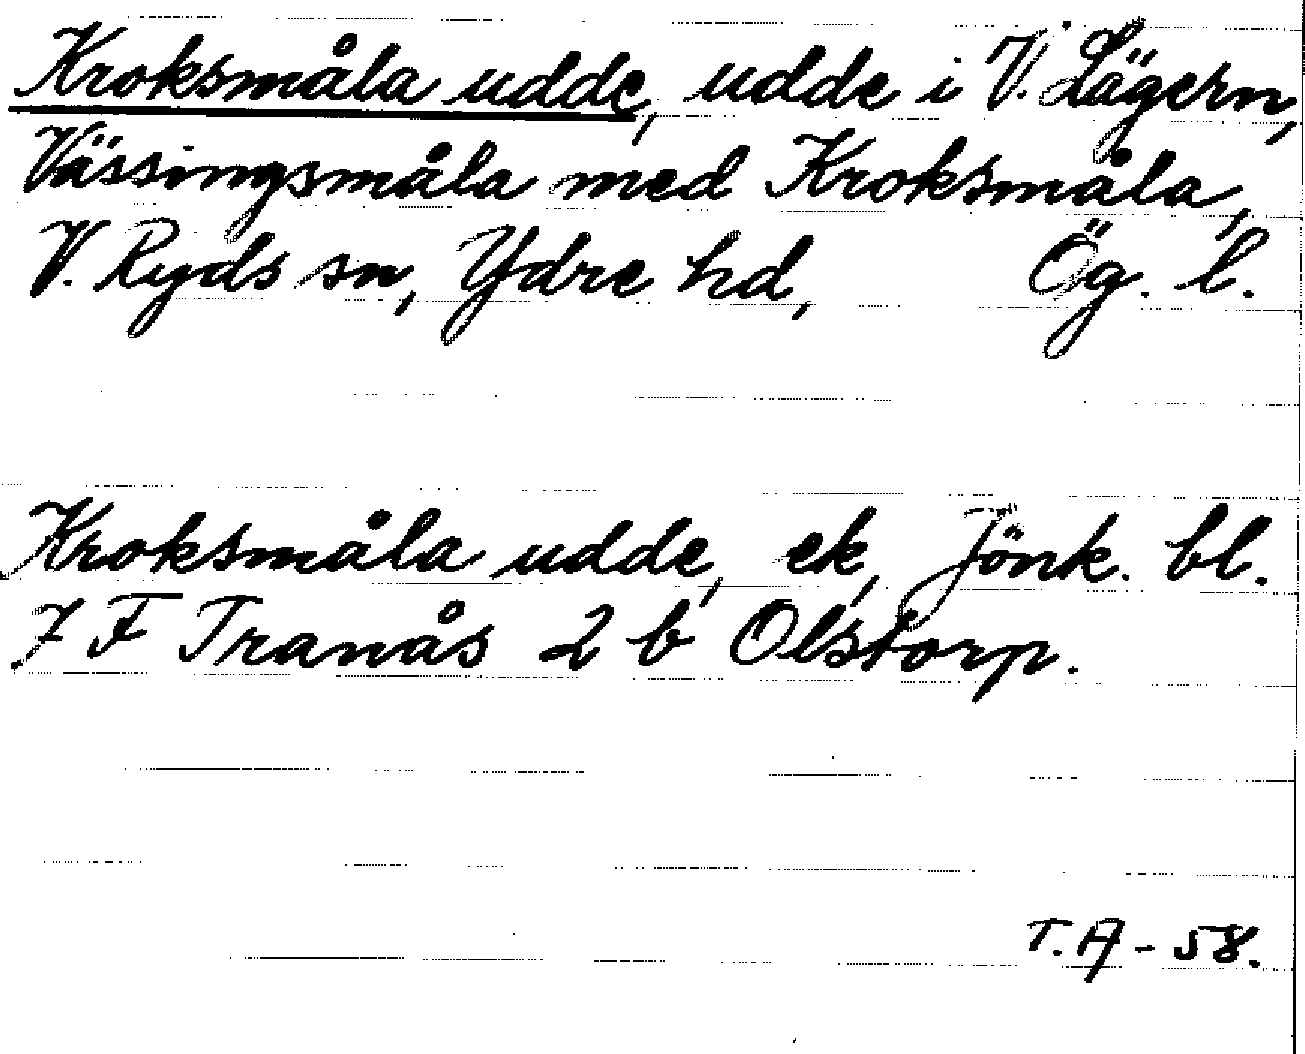 Kroksmåla udde, udde i V. Lägern,
Vässingsmåla med Kroksmåla,
V. Ryds sn, Ydre hd, Ög. l.
Kroksmåla udde, ek, Jönk. bl.
7 F Tranås 2 b Olstorp.
T.A - 58.